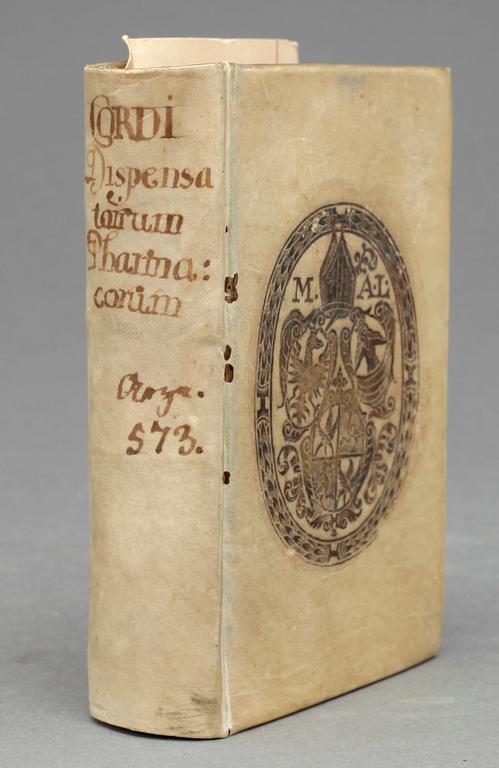 CORDI
Dispensa
torium
Pharma:
corum
573.
M. AL